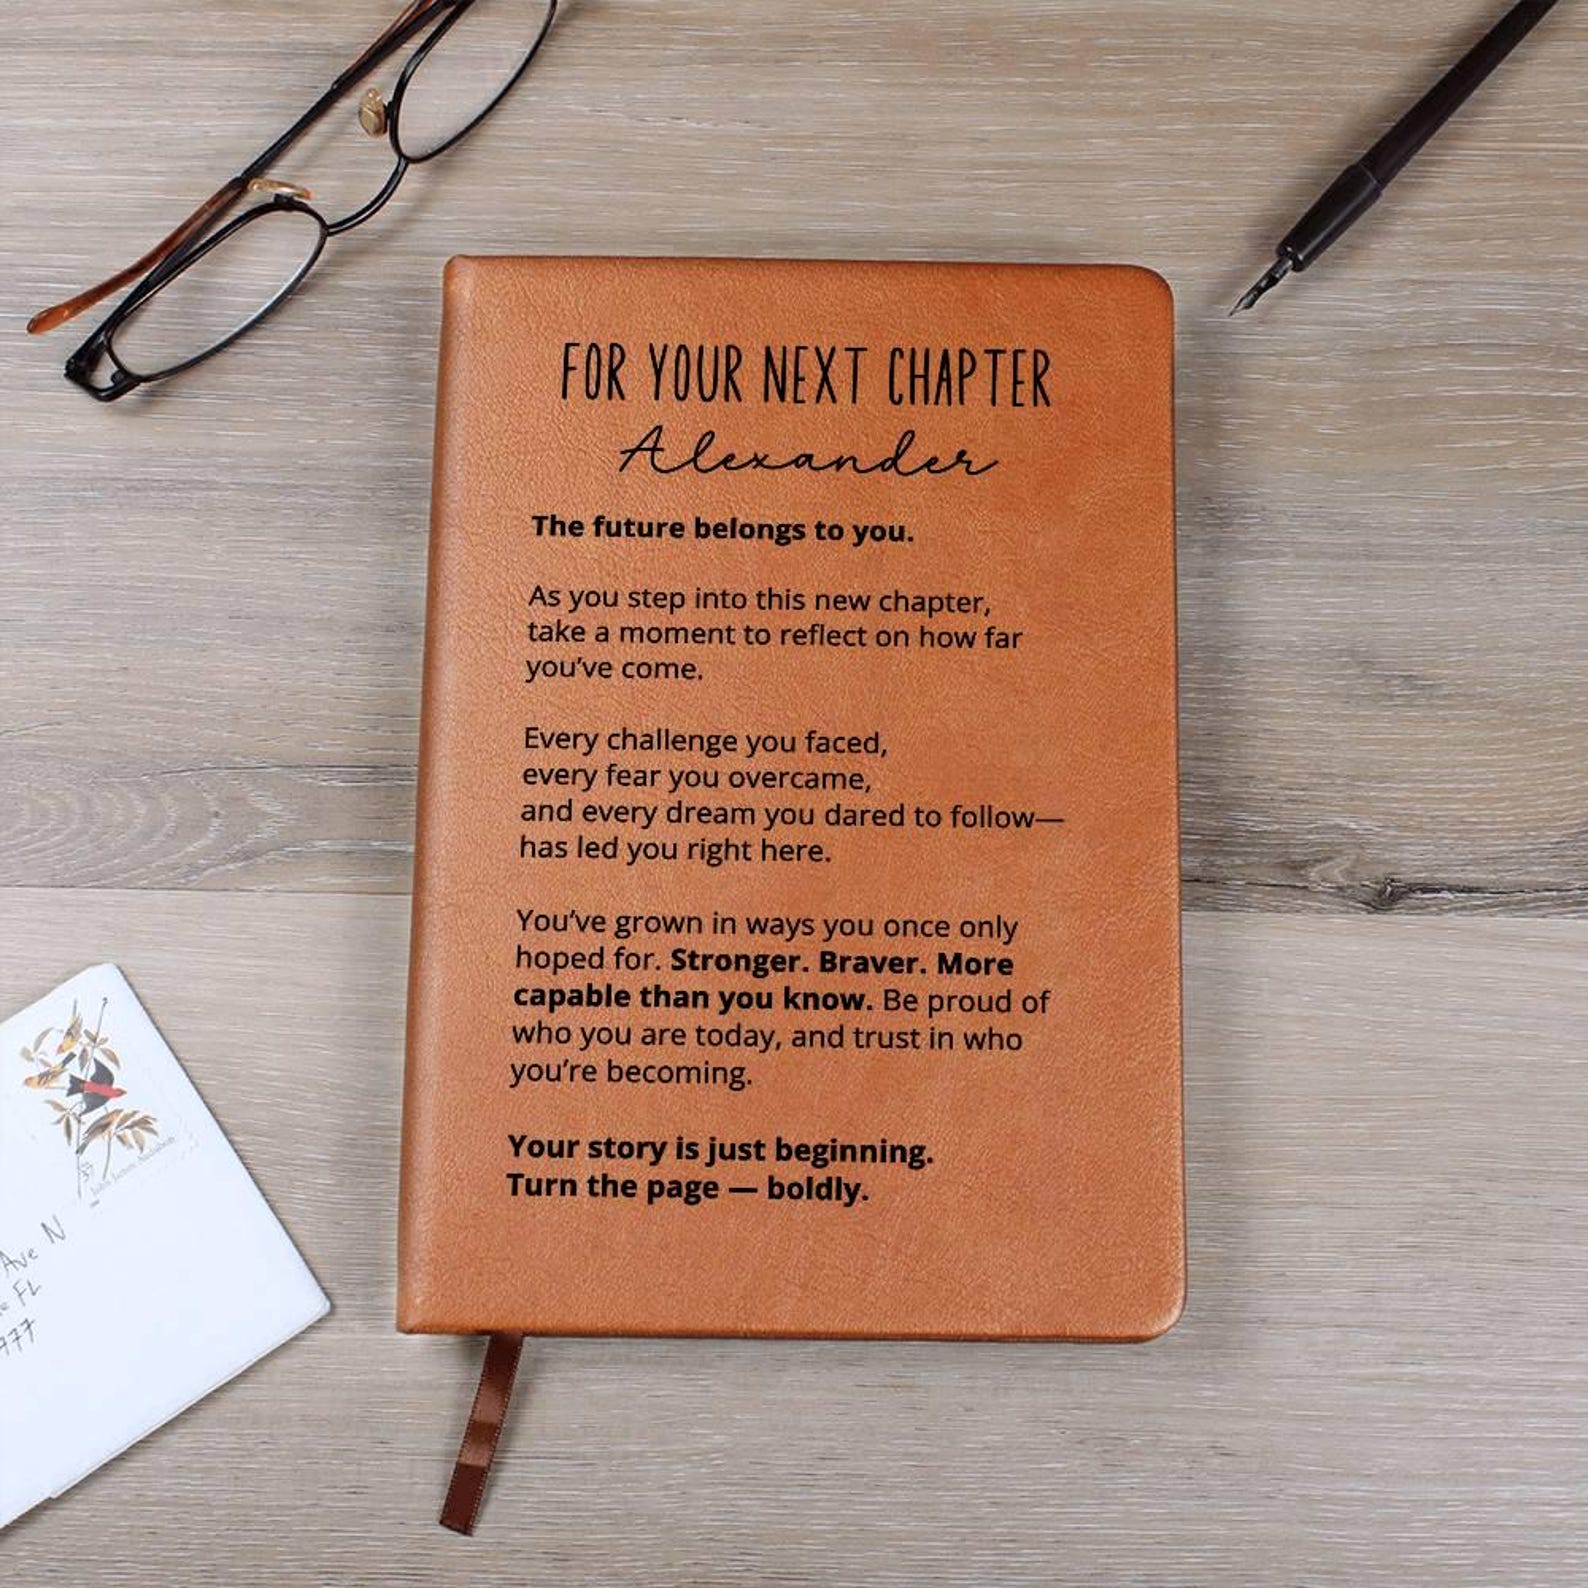 FOR YOUR NEXT CHAPTER
Alexander
The future belongs to you.
As you step into this new chapter,
take a moment to reflect on how far
you’ve come.
Every challenge you faced,
every fear you overcame,
and every dream you dared to follow—
has led you right here.
You’ve grown in ways you once only
hoped for. Stronger. Braver. More
capable than you know. Be proud of
who you are today, and trust in who
you’re becoming.
Your story is just beginning.
Turn the page — boldly.
37
John James Audubon
Ave N
FL
777